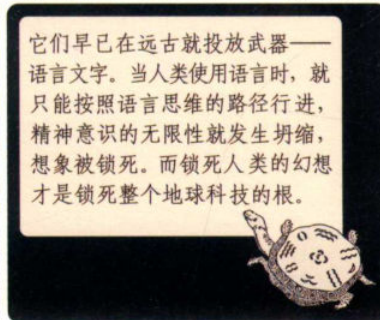 它们早已在远古就投放武器——
语言文字。当人类使用语言时，就
只能按照语言思维的路径行进，
精神意识的无限性就发生坍缩，
想象被锁死。而锁死人类的幻想
才是锁死整个地球科技的根。